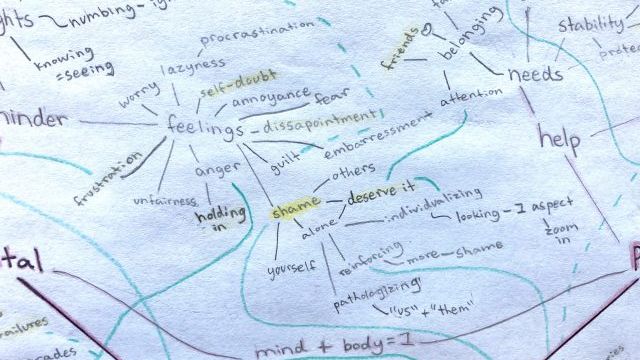 numbing
knowing
=seeing
procrastination
lazyness
worry
self-doubt
annoyance
fear
feelings
dissapointment
embarressment
guilt
frustration
anger
unfairness
holding
in
shame
others
deserve it
alone
individualizing
looking - 1 aspect
zoom
in
yourself
reinforcing
more - shame
pathologizing
"us" + "them"
friends
belonging
attention
needs
stability
help
mind + body = 1